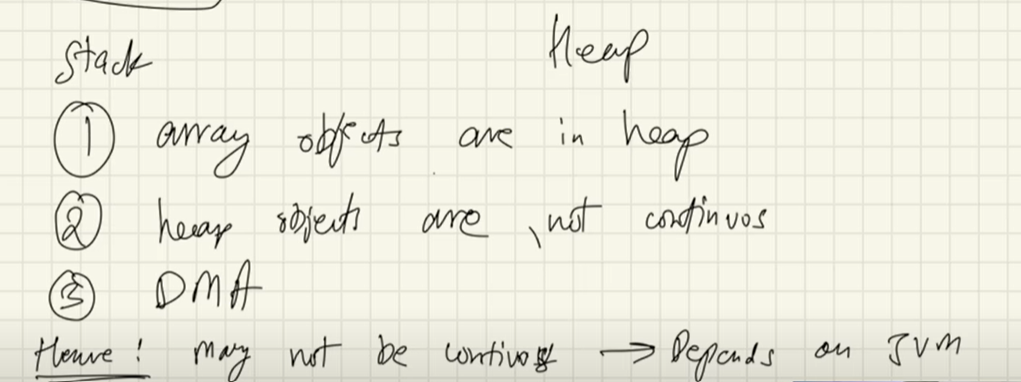 Stack Heap
① array objects are in heap
② heap objects are not continuos
③ DMA
Hence! may not be continuos → Depends on JVM